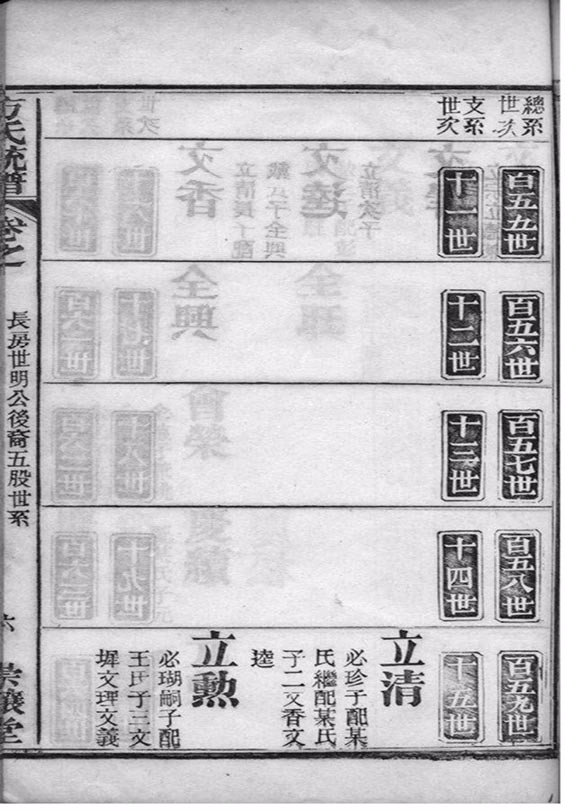 總系
世次
支系
世次
百五五世
十一世
百五六世
十二世
百五七世
十三世
百五八世
十四世
百五九世
十五世
立清
必珍子配某
氏繼配某氏
子二文香文
逵
立勲
必瑚嗣子配
王氏子三文
墀文理文義
方氏統譜
卷之一
長房世明公後裔五股世系
六
堂